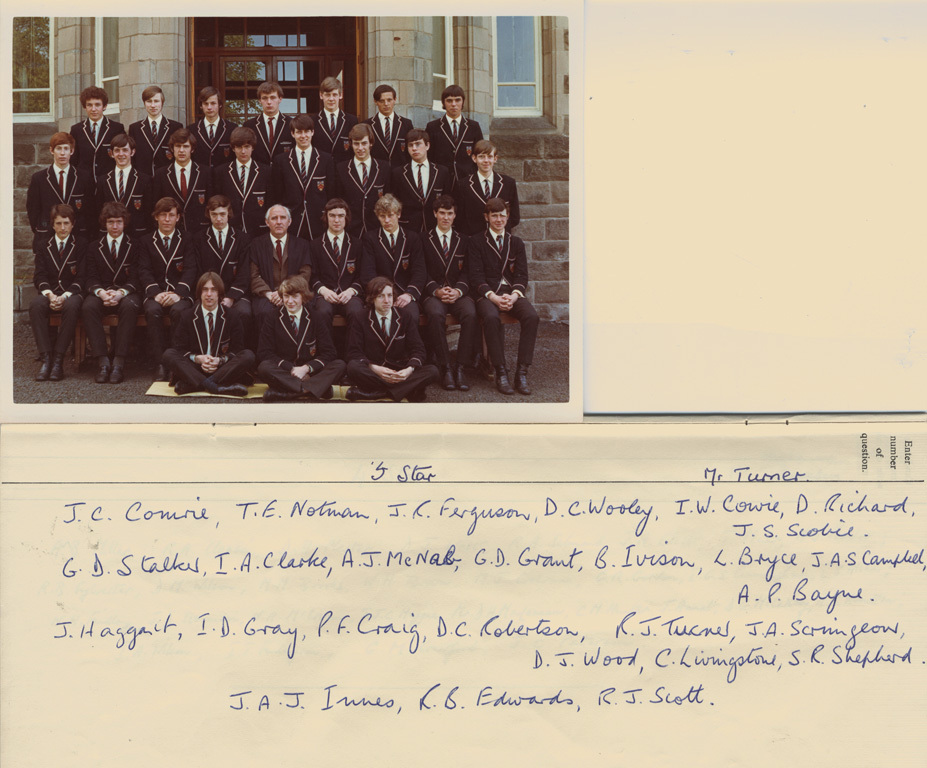 Enter
number
of
question.
5 Star Mr Turner.
J. C. Comrie, T. E. Notman, J. R. Ferguson, D. C. Wooley, I. W. Cowie, D. Richard,
J. S. Scobie.
G. D. Stalker, I. A. Clarke, A. J. McNab, G. D. Grant, B. Ivison, L. Bryce, J. A. S Campbell,
A. P. Bayne.
J. Haggart, I. D. Gray, P. F. Craig, D. C. Robertson, R. J. Turner, J. A. Scrimgeour,
D. J. Wood, C. Livingstone, S. R. Shepherd.
J. A. J. Innes, R. B. Edwards, R. J. Scott.